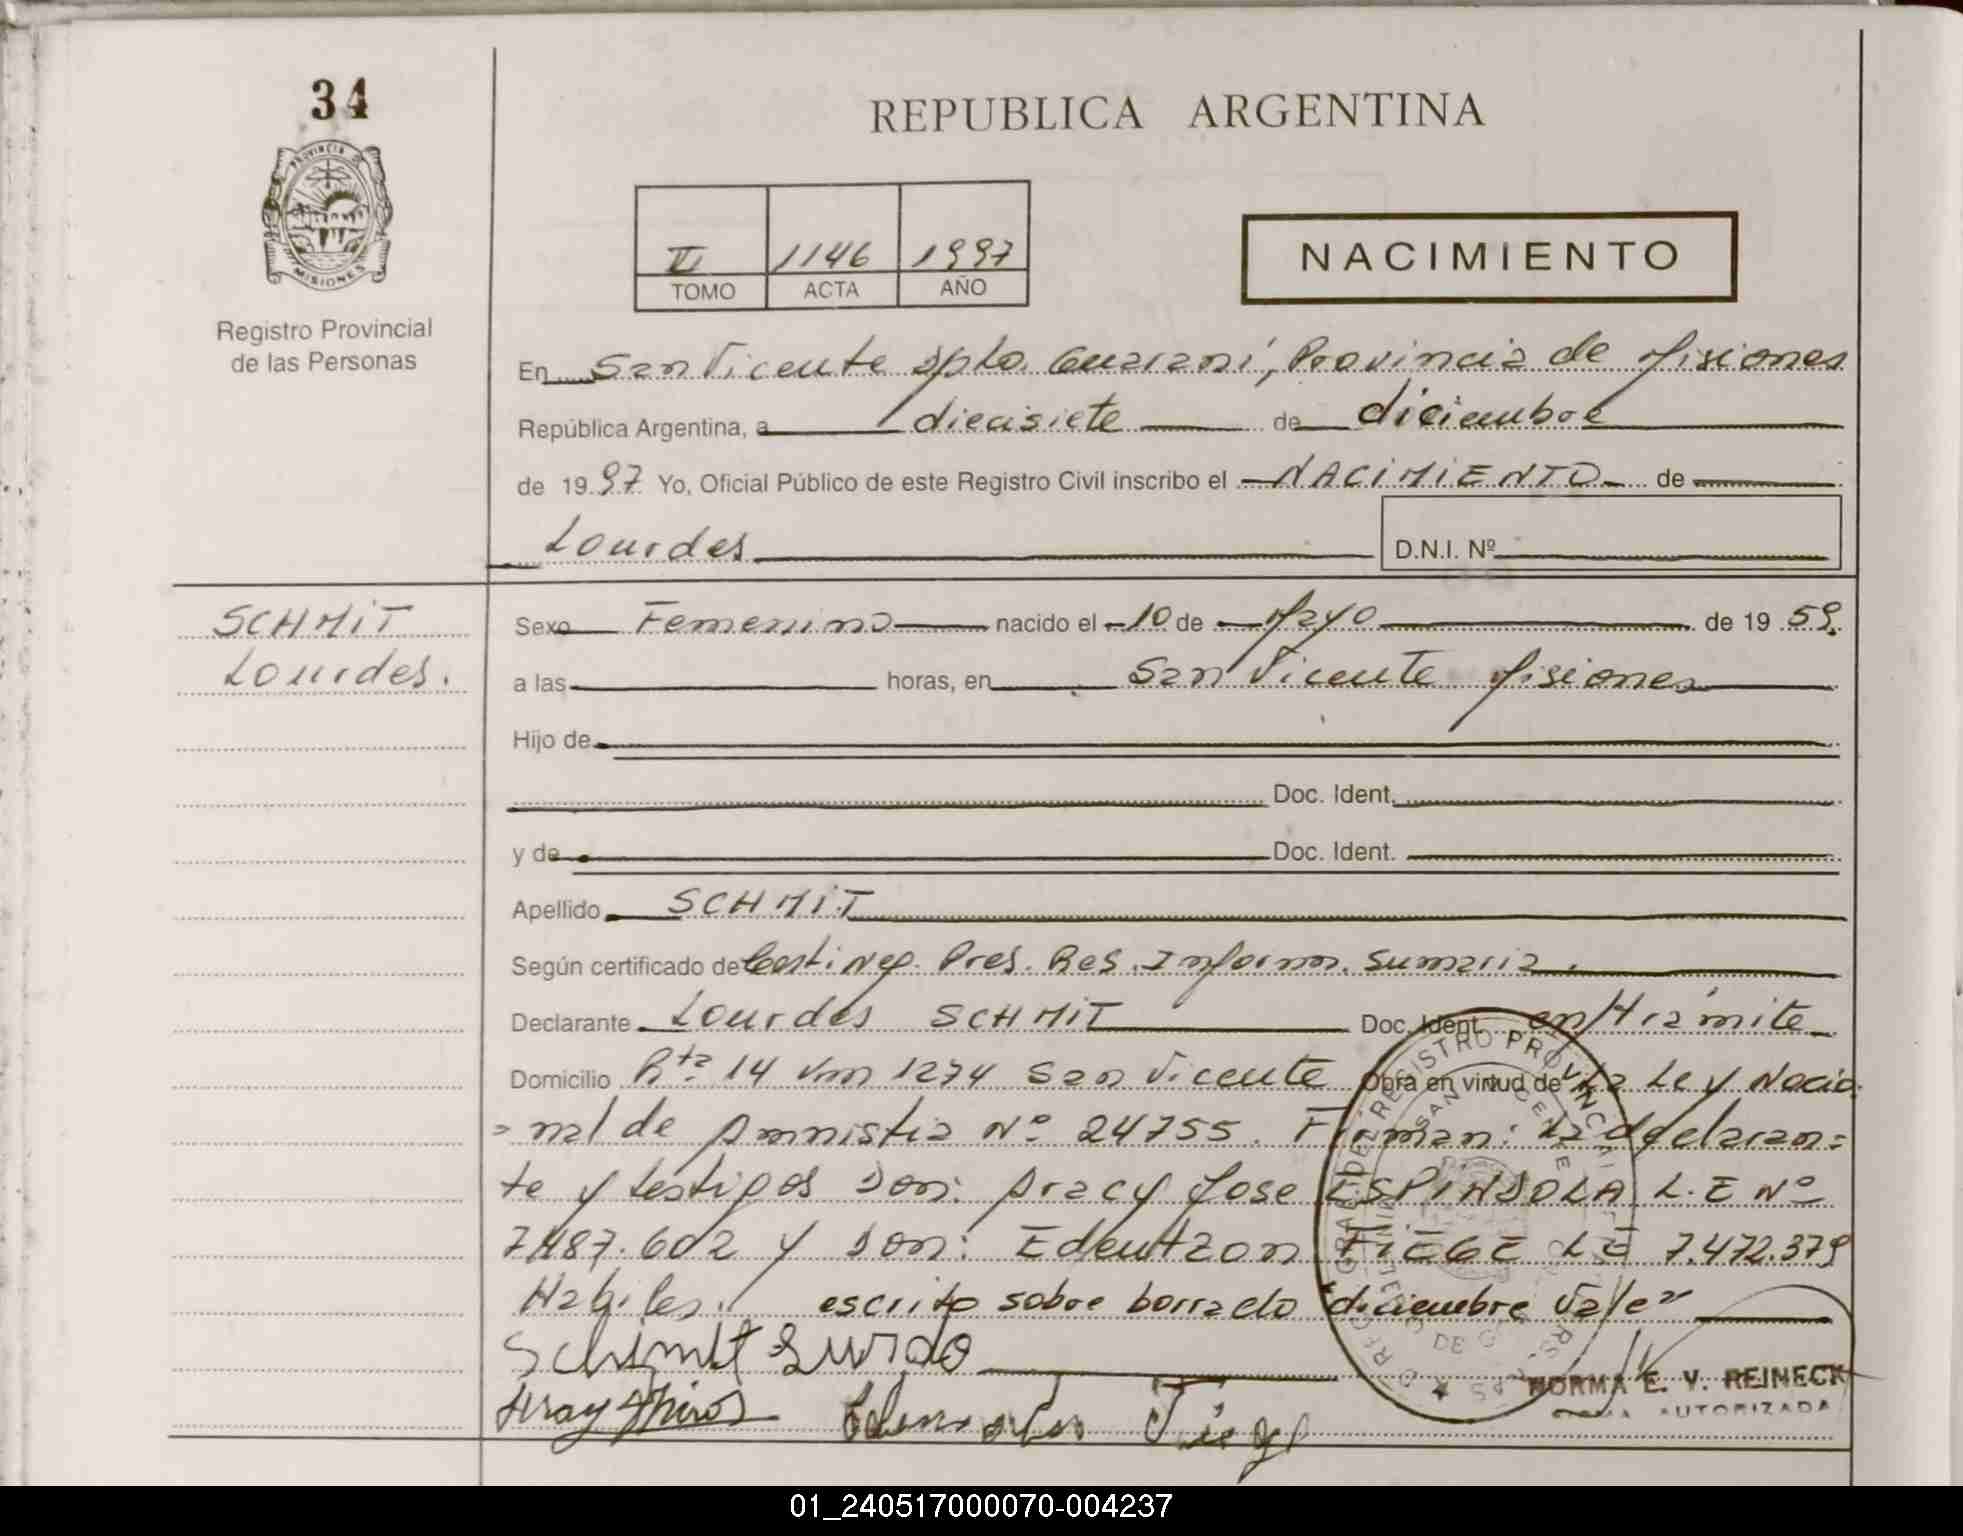 34
REPUBLICA ARGENTINA
PROVINCIA DE
MISIONES
VI 1146 1997
TOMO ACTA AÑO
NACIMIENTO
Registro Provincial
de las Personas
En San Vicente Dpto. Guaraní, Provincia de Misiones
República Argentina, a diecisiete de diciembre
de 1997 Yo, Oficial Público de este Registro Civil inscribo el NACIMIENTO de
Lourdes D.N.I. Nº
SCHMIT
Lourdes.
Sexo Femenino nacido el 10 de Mayo de 1959.
a las horas, en San Vicente Misiones
Hijo de
Doc. Ident.
y de Doc. Ident.
Apellido SCHMIT
Según certificado de Cert. Neg. Pres. Res. Inform. Sumaria.
Declarante Lourdes SCHMIT Doc. Ident. en/trámite
Domicilio Rta 14 Km 1274 San Vicente Obra en virtud de La Ley Nacio
=nal de Amnistia Nº 24755. Firman: La declaran=
te y testigos Don: Aracy Jose ESPINDOLA L.E Nº
7.487.602 y Don: Edeutzon TIEGE LE 7.472.379
Habiles. escrito sobre borrado "diciembre Vale"
Schimit Lurdo
NORMA E. V. REINECK
FIRMA AUTORIZADA
01_240517000070-004237